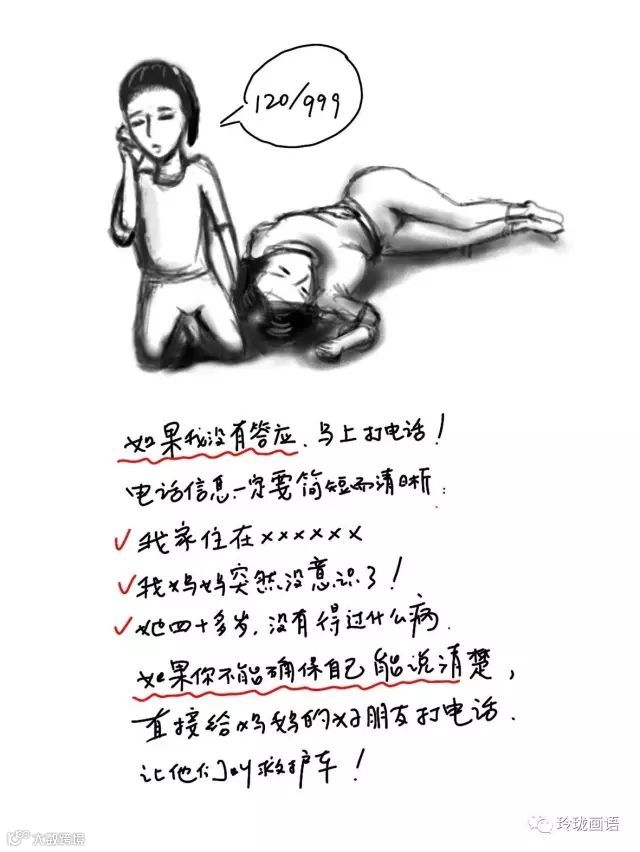 120/999
如果我没有答应、马上打电话！
电话信息一定要简短而清晰：
✓我家住在××××××
✓我妈妈突然没意识了！
✓她四十多岁，没有得过什么病.
如果你不能确保自己能说清楚，
直接给妈妈的好朋友打电话.
让他们叫救护车！
大数跨境
玲珑画语